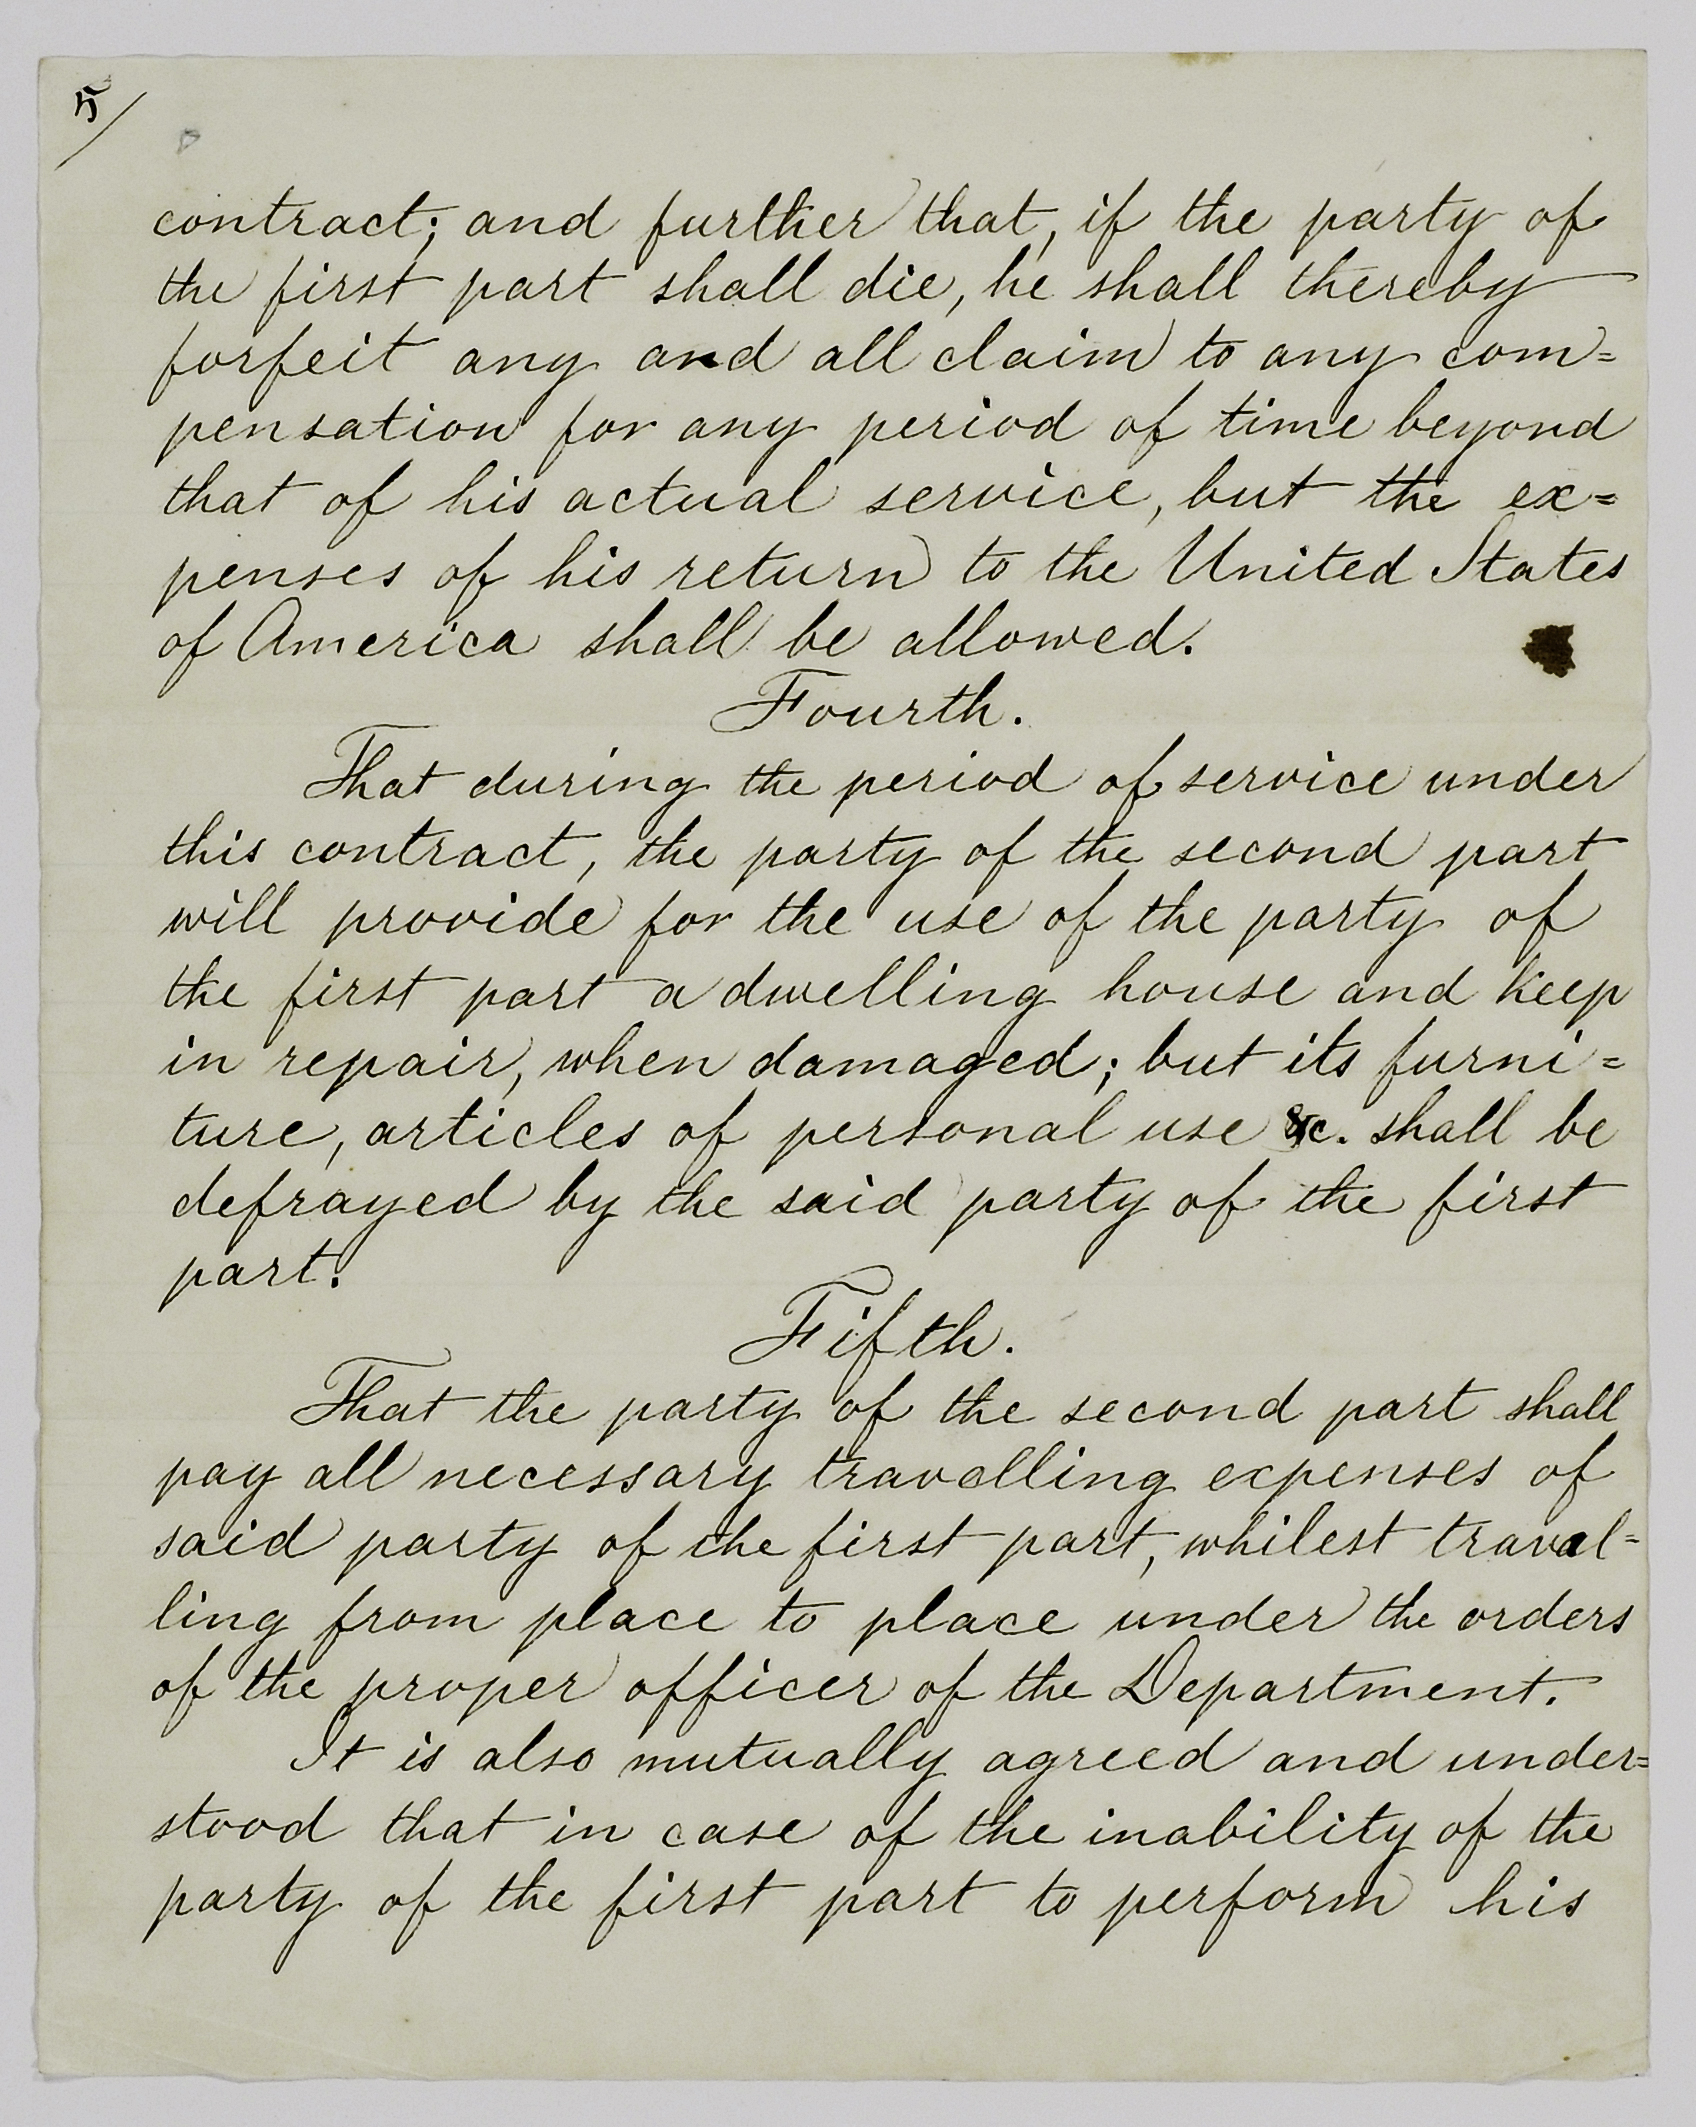 5/
contract; and further that, if the party of
the first part shall die, he shall thereby
forfeit any and all claim to any com=
pensation for any period of time beyond
that of his actual service, but the ex=
penses of his return to the United States
of America shall be allowed.
Fourth.
That during the period of service under
this contract, the party of the second part
will provide for the use of the party of
the first part a dwelling house and keep
in repair, when damaged; but its furni=
ture, articles of personal use &c. shall be
defrayed by the said party of the first
part.
Fifth.
That the party of the second part shall
pay all necessary travelling expenses of
said party of the first part, whilest traval-
ling from place to place under the orders
of the proper officer of the Department.
It is also mutually agreed and under=
stood that in case of the inability of the
party of the first part to perform his